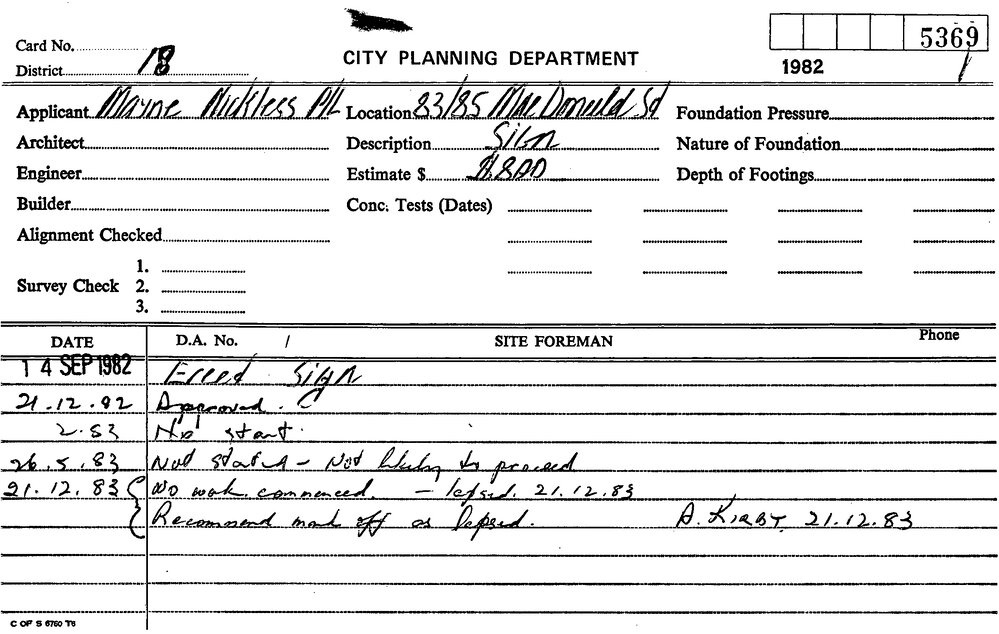 5369
Card No.
CITY PLANNING DEPARTMENT
District 18
1982
Applicant Mayne Nickless P/L Location 83/85 MacDonald St Foundation Pressure
Architect Description Sign Nature of Foundation
Engineer Estimate $ $800 Depth of Footings
Builder Conc. Tests (Dates)
Alignment Checked
1.
Survey Check 2.
3.
DATE D.A. No. / SITE FOREMAN Phone
14 SEP 1982 Erect Sign
21.12.82 Approved.
2.83 No start.
26.5.83 Not started - Not likely to proceed
21.12.83 No work commenced. - lapsed. 21.12.83
Recommend mark off as lapsed. A. KIRBY 21.12.83
C OF S 6760 T6